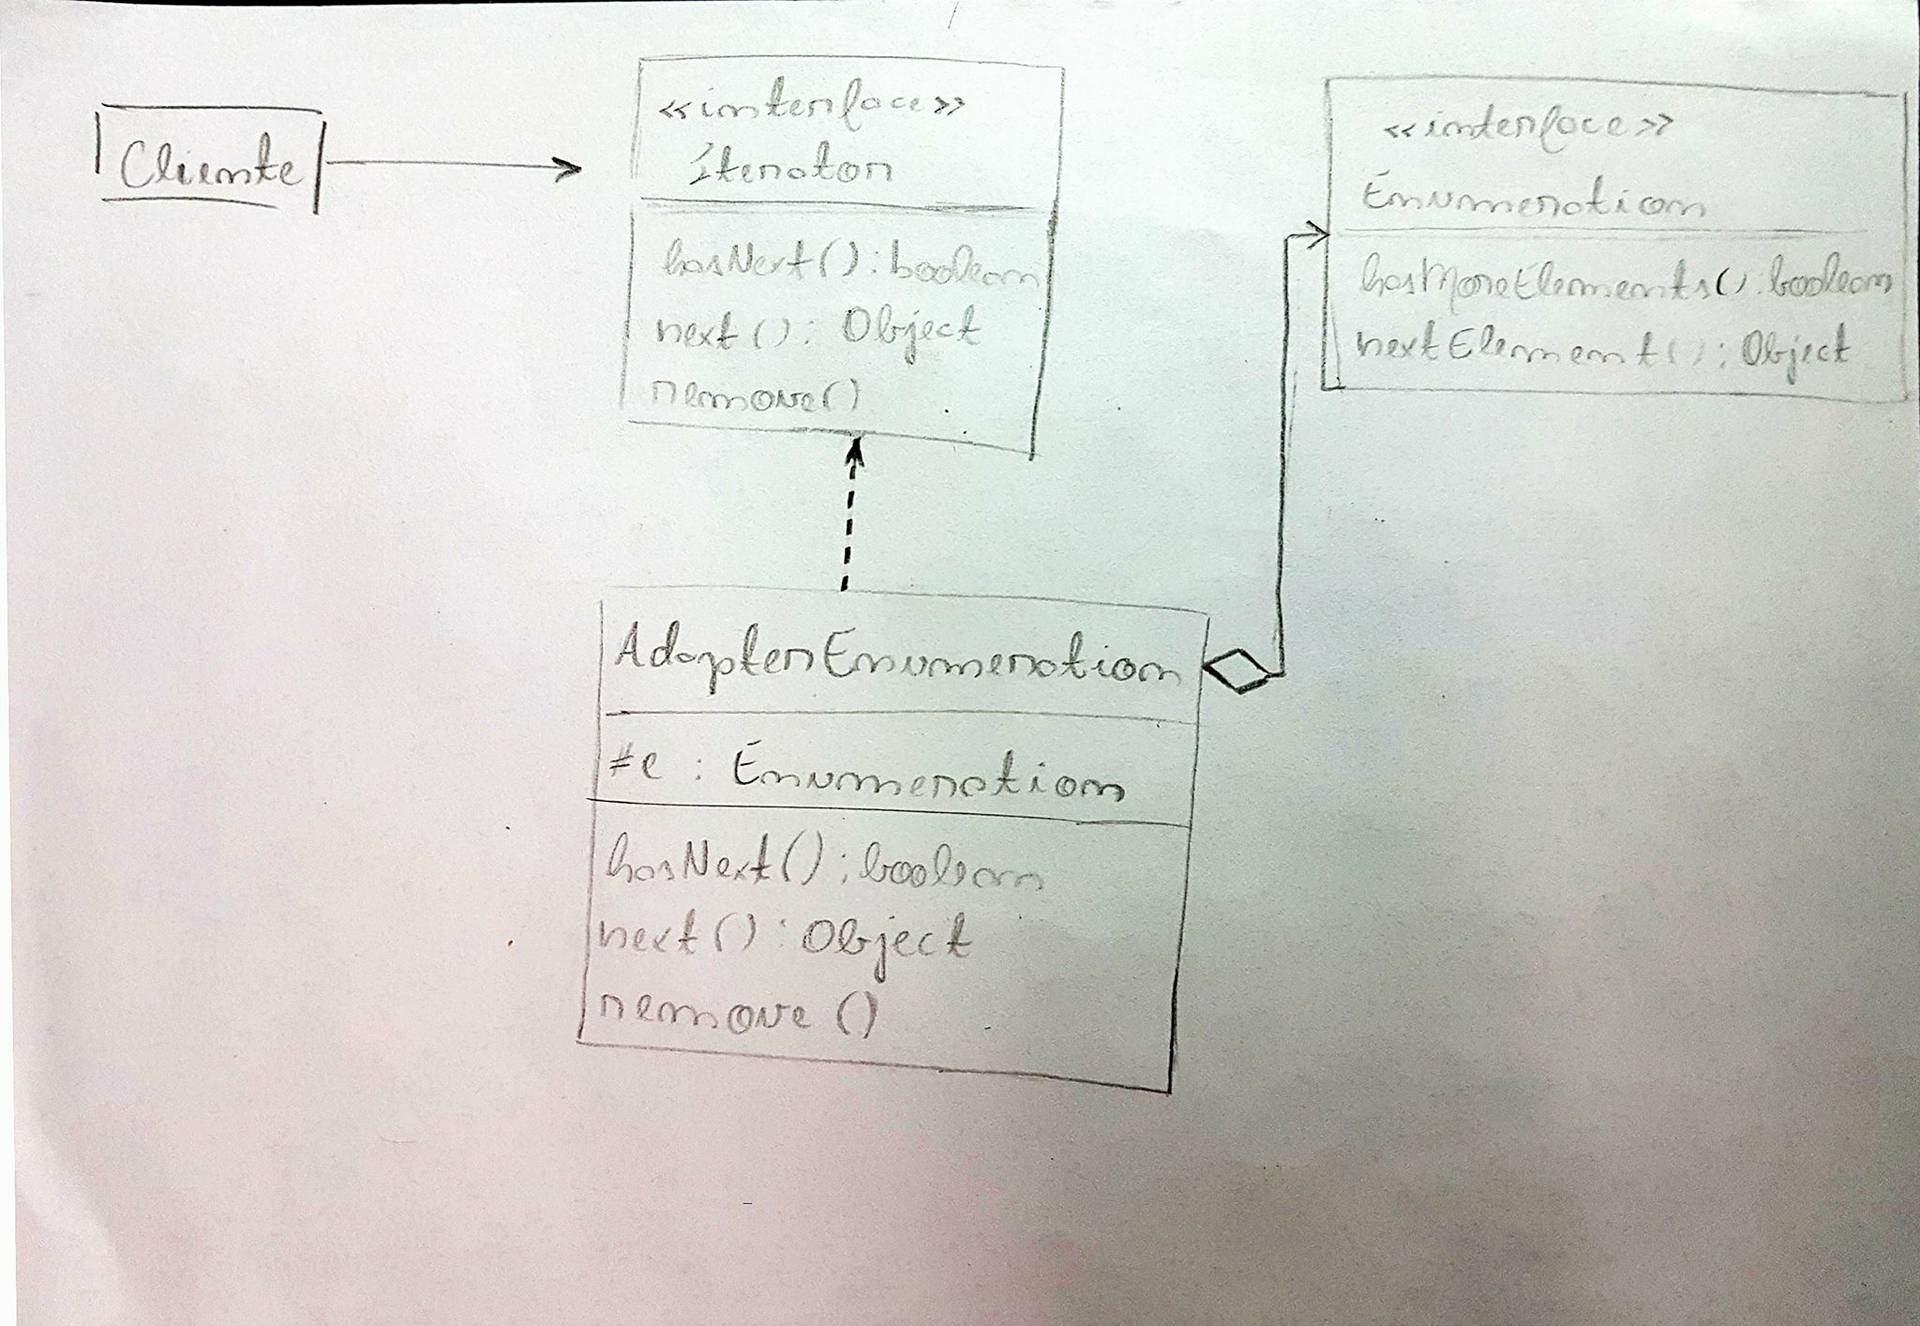 Cliente
«interface»
Iterator
hasNext() : boolean
next() : Object
remove()
«interface»
Enumeration
hasMoreElements() : boolean
nextElement() : Object
AdapterEnumeration
#e : Enumeration
hasNext() : boolean
next() : Object
remove ()